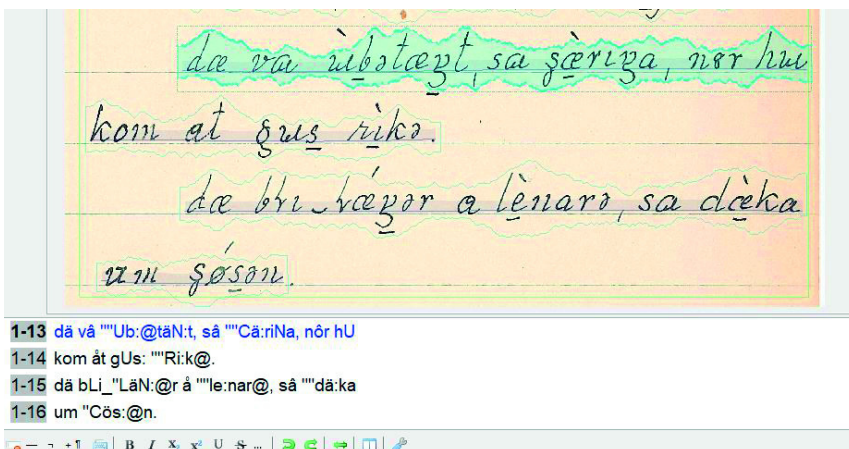 dæ va ùbətæŋt, sa şæ̀rıŋa, nɞr hu
kom at gus rìkə.
dæ blı‿lǽŋər a lènarə, sa dæ̀ka
um şǿsən.
1-13 dä vâ ""Ub:@täN:t, sâ ""Cä:riNa, nôr hU
1-14 kom åt gUs: ""Ri:k@.
1-15 dä bLi_"LäN:@r å ""le:nar@, sâ ""dä:ka
1-16 um "Cös:@n.
B I X₂ X² U S ...